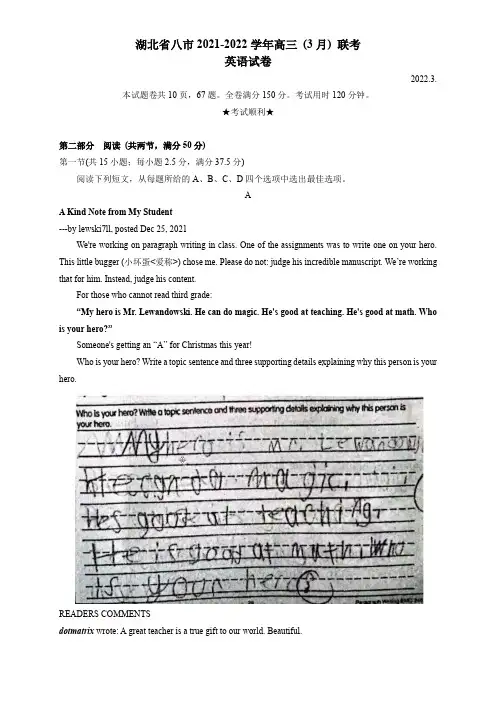 湖北省八市2021-2022学年高三(3月)联考
英语试卷
2022.3.
本试题卷共10页,67题。全卷满分150分。考试用时120分钟。
★考试顺利★
第二部分 阅读 (共两节,满分50分)
第一节(共15小题;每小题2.5分,满分37.5分)
阅读下列短文,从每题所给的A、B、C、D四个选项中选出最佳选项。
A
A Kind Note from My Student
---by lewski7ll, posted Dec 25, 2021
We're working on paragraph writing in class. One of the assignments was to write one on your hero.
This little bugger (小坏蛋<爱称>) chose me. Please do not: judge his incredible manuscript. We`re working
that for him. Instead, judge his content.
For those who cannot read third grade:
“My hero is Mr. Lewandowski. He can do magic. He's good at teaching. He's good at math. Who
is your hero?”
Someone's getting an “A” for Christmas this year!
Who is your hero? Write a topic sentence and three supporting details explaining why this person is your
hero.
Who is your hero? Write a topic sentence and three supporting details explaining why this person is
your hero.
My hero is Mr. Lewandow
He can do magic.
Hes good at teaching.
He is good at math. Who
is your hero
READERS COMMENTS
dotmatrix wrote: A great teacher is a true gift to our world. Beautiful.